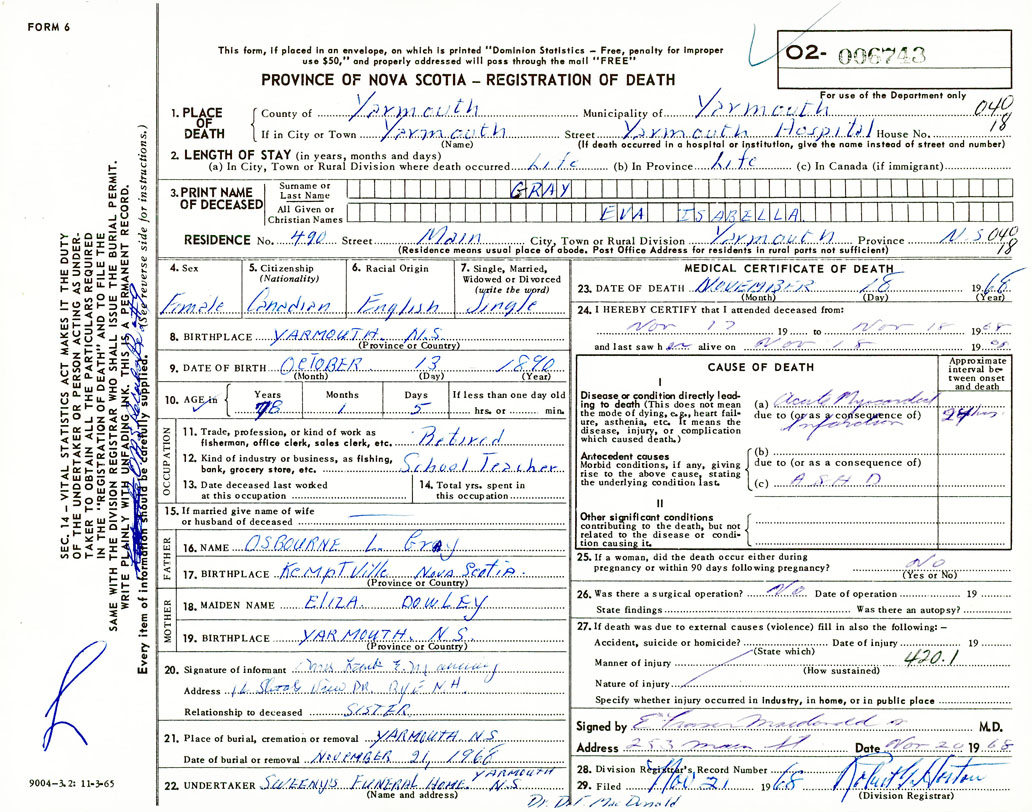 FORM 6
This form, if placed in an envelope, on which is printed "Dominion Statistics — Free, penalty for improper
use $50," and properly addressed will pass through the mail "FREE"
PROVINCE OF NOVA SCOTIA — REGISTRATION OF DEATH
O2- 006743
For use of the Department only
1. PLACE OF DEATH
County of Yarmouth Municipality of Yarmouth 040
If in City or Town Yarmouth Street Yarmouth Hospital House No. 18
(Name) (If death occurred in a hospital or institution, give the name instead of street and number)
2. LENGTH OF STAY (in years, months and days)
(a) In City, Town or Rural Division where death occurred Life (b) In Province Life (c) In Canada (if immigrant)
3. PRINT NAME OF DECEASED
Surname or Last Name GRAY
All Given or Christian Names EVA ISABELLA
RESIDENCE No. 490 Street Main City, Town or Rural Division Yarmouth Province N S 040
(Residence means usual place of abode. Post Office Address for residents in rural parts not sufficient) 18
4. Sex Female
5. Citizenship (Nationality) Canadian
6. Racial Origin English
7. Single, Married, Widowed or Divorced (write the word) Single
8. BIRTHPLACE YARMOUTH. N.S.
(Province or Country)
9. DATE OF BIRTH OCTOBER 13 1890
(Month) (Day) (Year)
10. AGE in Years Months Days If less than one day old
78 1 5 hrs. or min.
OCCUPATION
11. Trade, profession, or kind of work as fisherman, office clerk, sales clerk, etc. Retired
12. Kind of industry or business, as fishing, bank, grocery store, etc. School Teacher
13. Date deceased last worked at this occupation
14. Total yrs. spent in this occupation
15. If married give name of wife or husband of deceased
FATHER
16. NAME OSBOURNE L. Gray
17. BIRTHPLACE KEMPTVILLE NOVA SCOTIA.
(Province or Country)
MOTHER
18. MAIDEN NAME ELIZA DOWLEY
19. BIRTHPLACE YARMOUTH. N.S.
(Province or Country)
20. Signature of informant Mrs
Address DR. RYE N H
Relationship to deceased SISTER
21. Place of burial, cremation or removal YARMOUTH N.S
Date of burial or removal NOVEMBER 21, 1968
22. UNDERTAKER SWEENY'S FUNERAL HOME. YARMOUTH N.S
(Name and address)
MEDICAL CERTIFICATE OF DEATH
23. DATE OF DEATH NOVEMBER 18 1968
(Month) (Day) (Year)
24. I HEREBY CERTIFY that I attended deceased from:
Nov 17 19 to Nov 18 1968
and last saw her alive on Nov 18 1968
CAUSE OF DEATH
Approximate interval between onset and death
I
Disease or condition directly leading to death (This does not mean the mode of dying, e.g., heart failure, asthenia, etc. It means the disease, injury, or complication which caused death.)
(a) Acute Myocardial
due to (or as a consequence of) Infarction 24 hrs
Antecedent causes
Morbid conditions, if any, giving rise to the above cause, stating the underlying condition last.
(b)
due to (or as a consequence of)
(c) A S H D
II
Other significant conditions
contributing to the death, but not related to the disease or condition causing it.
25. If a woman, did the death occur either during
pregnancy or within 90 days following pregnancy? No
(Yes or No)
26. Was there a surgical operation? No Date of operation 19
State findings Was there an autopsy?
27. If death was due to external causes (violence) fill in also the following: —
Accident, suicide or homicide? Date of injury 19
(State which)
Manner of injury 420.1
(How sustained)
Nature of injury
Specify whether injury occurred in industry, in home, or in public place
Signed by E Fraser Macdonald M.D.
Address 253 Main St Date Nov 20 1968
28. Division Registrar's Record Number
29. Filed Nov 21 1968
(Division Registrar)
Dr. D.F. MacDonald
SEC. 14 — VITAL STATISTICS ACT MAKES IT THE DUTY
OF THE UNDERTAKER OR PERSON ACTING AS UNDER-
TAKER TO OBTAIN ALL THE PARTICULARS REQUIRED
IN THE "REGISTRATION OF DEATH" AND TO FILE THE
SAME WITH THE DIVISION REGISTRAR WHO SHALL ISSUE THE BURIAL PERMIT.
WRITE PLAINLY WITH UNFADING INK. THIS IS A PERMANENT RECORD.
Every item of information should be carefully supplied. (See reverse side for instructions.)
9004-3.2: 11-3-65